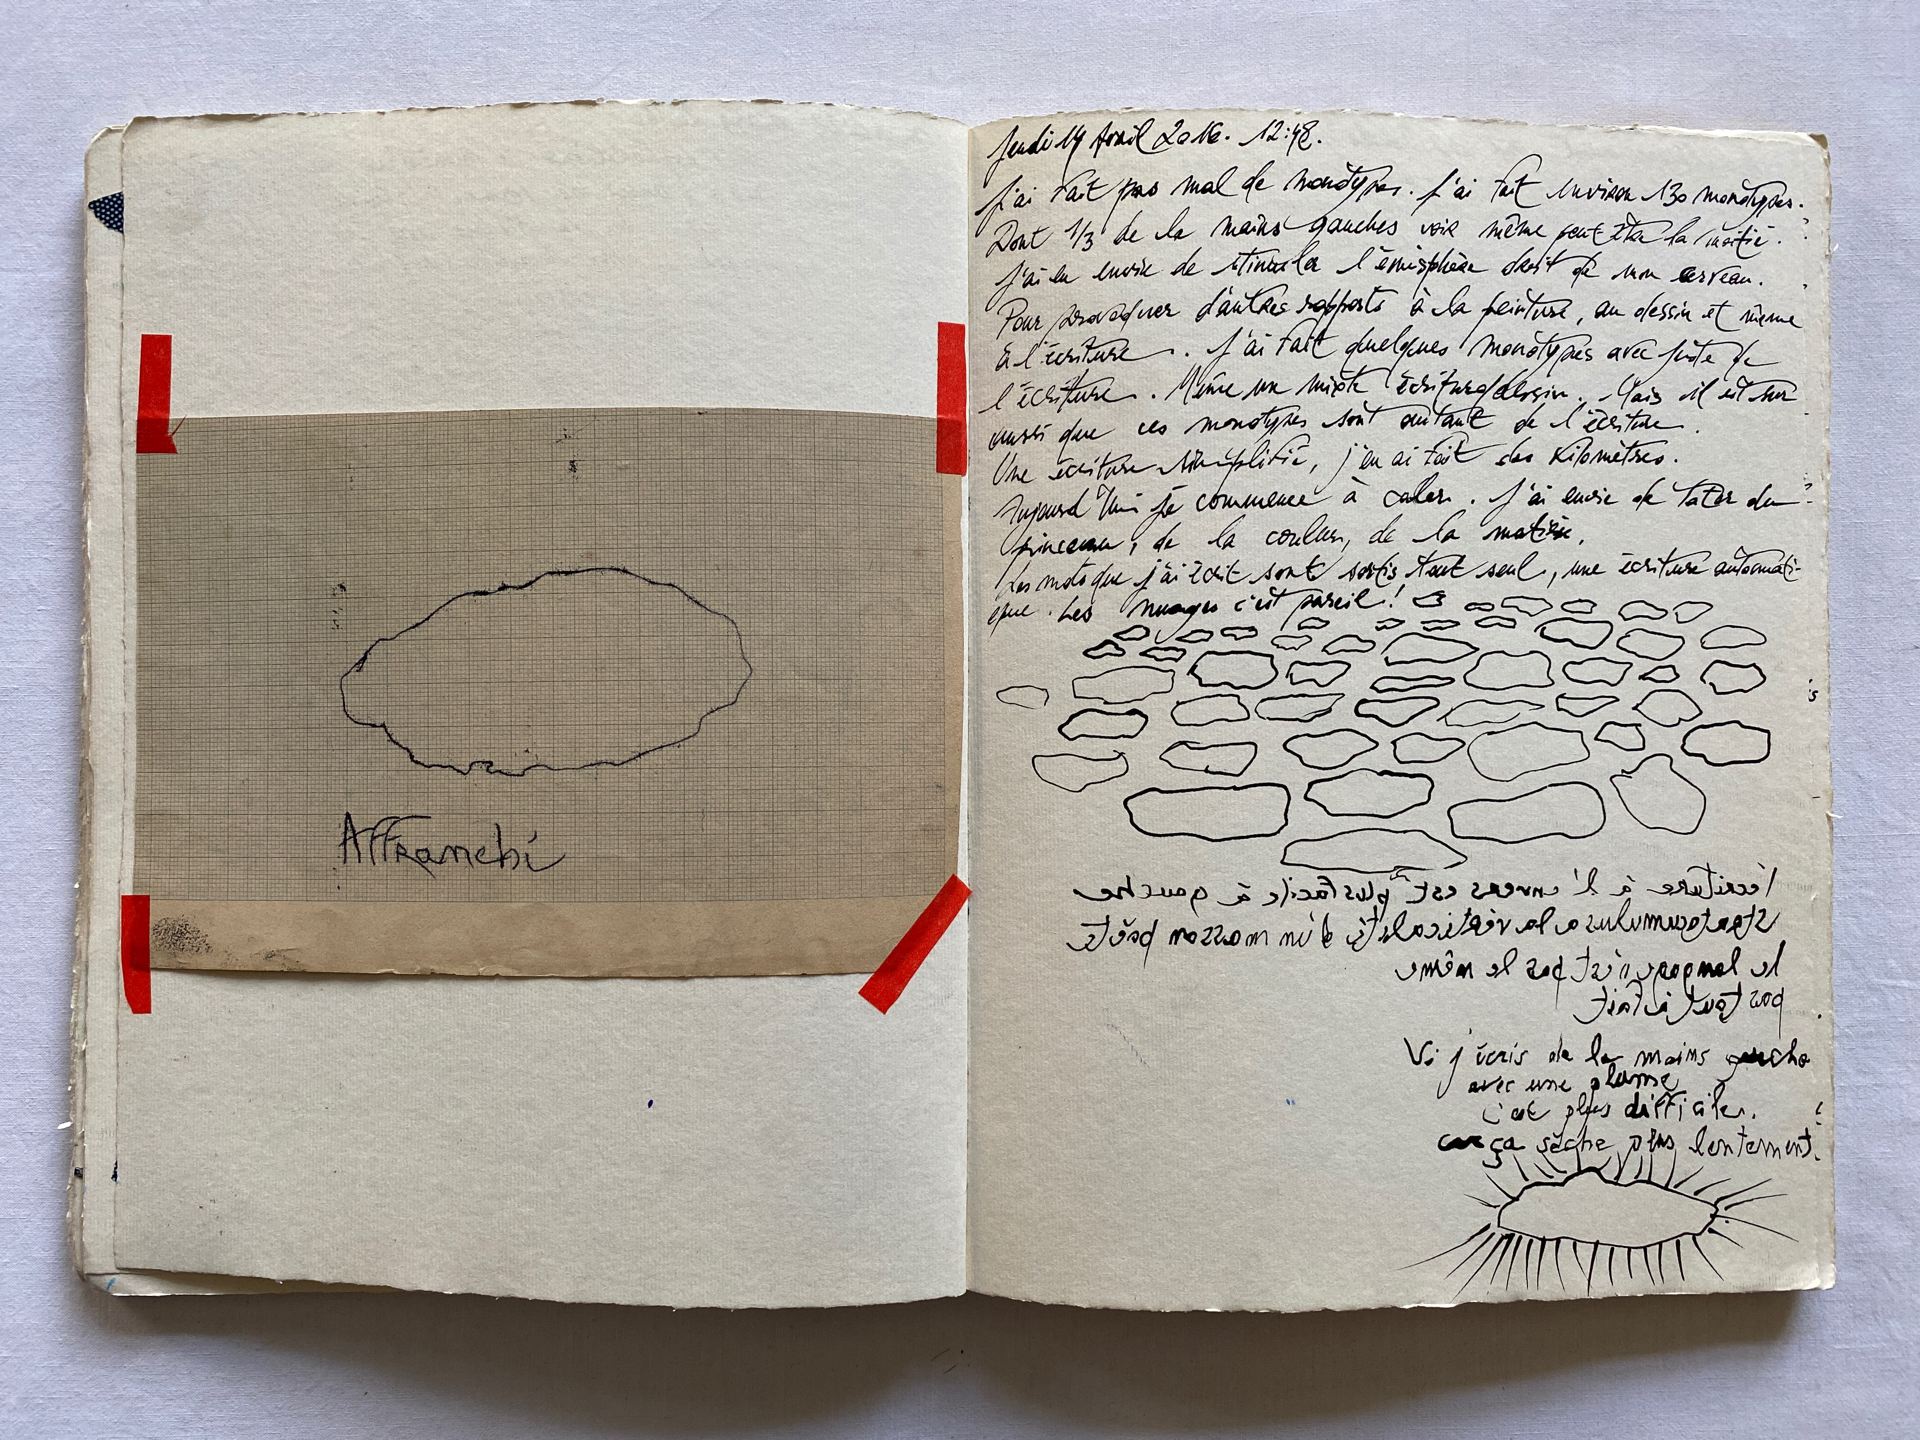 Affranchi
Jeudi 14 Avril 2016. 12:48.
J'ai fait pas mal de monotypes. J'ai fait environ 130 monotypes.
Dont 1/3 de la mains gauches voir même peut être la moitié.
J'ai eu envie de stimuler l'émisphère droit de mon cerveau.
Pour provoquer d'autres rapports à la peinture, au dessin et même
à l'écriture. J'ai fait quelques monotypes avec juste de
l'écriture. Même un mixte écriture/dessin. Mais il est sur
aussi que ces monotypes sont autant de l'écriture.
Une écriture simplifié, j'en ai fait des kilomètres.
Aujourd'hui je commence à caler. J'ai envie de tater du
pinceau, de la couleur, de la matière.
Les mots que j'ai écrit sont sortis tout seul, une écriture automati-
que. Les nuages c'est pareil!
l'écriture à l'envers est plus facile à gauche
stratocumulus a la verticalité d'un
le langage n'est pas le même
pas tout à fait
j'écris de la mains gauche
avec une plume
c'est plus difficile.
ça sèche plus lentement.